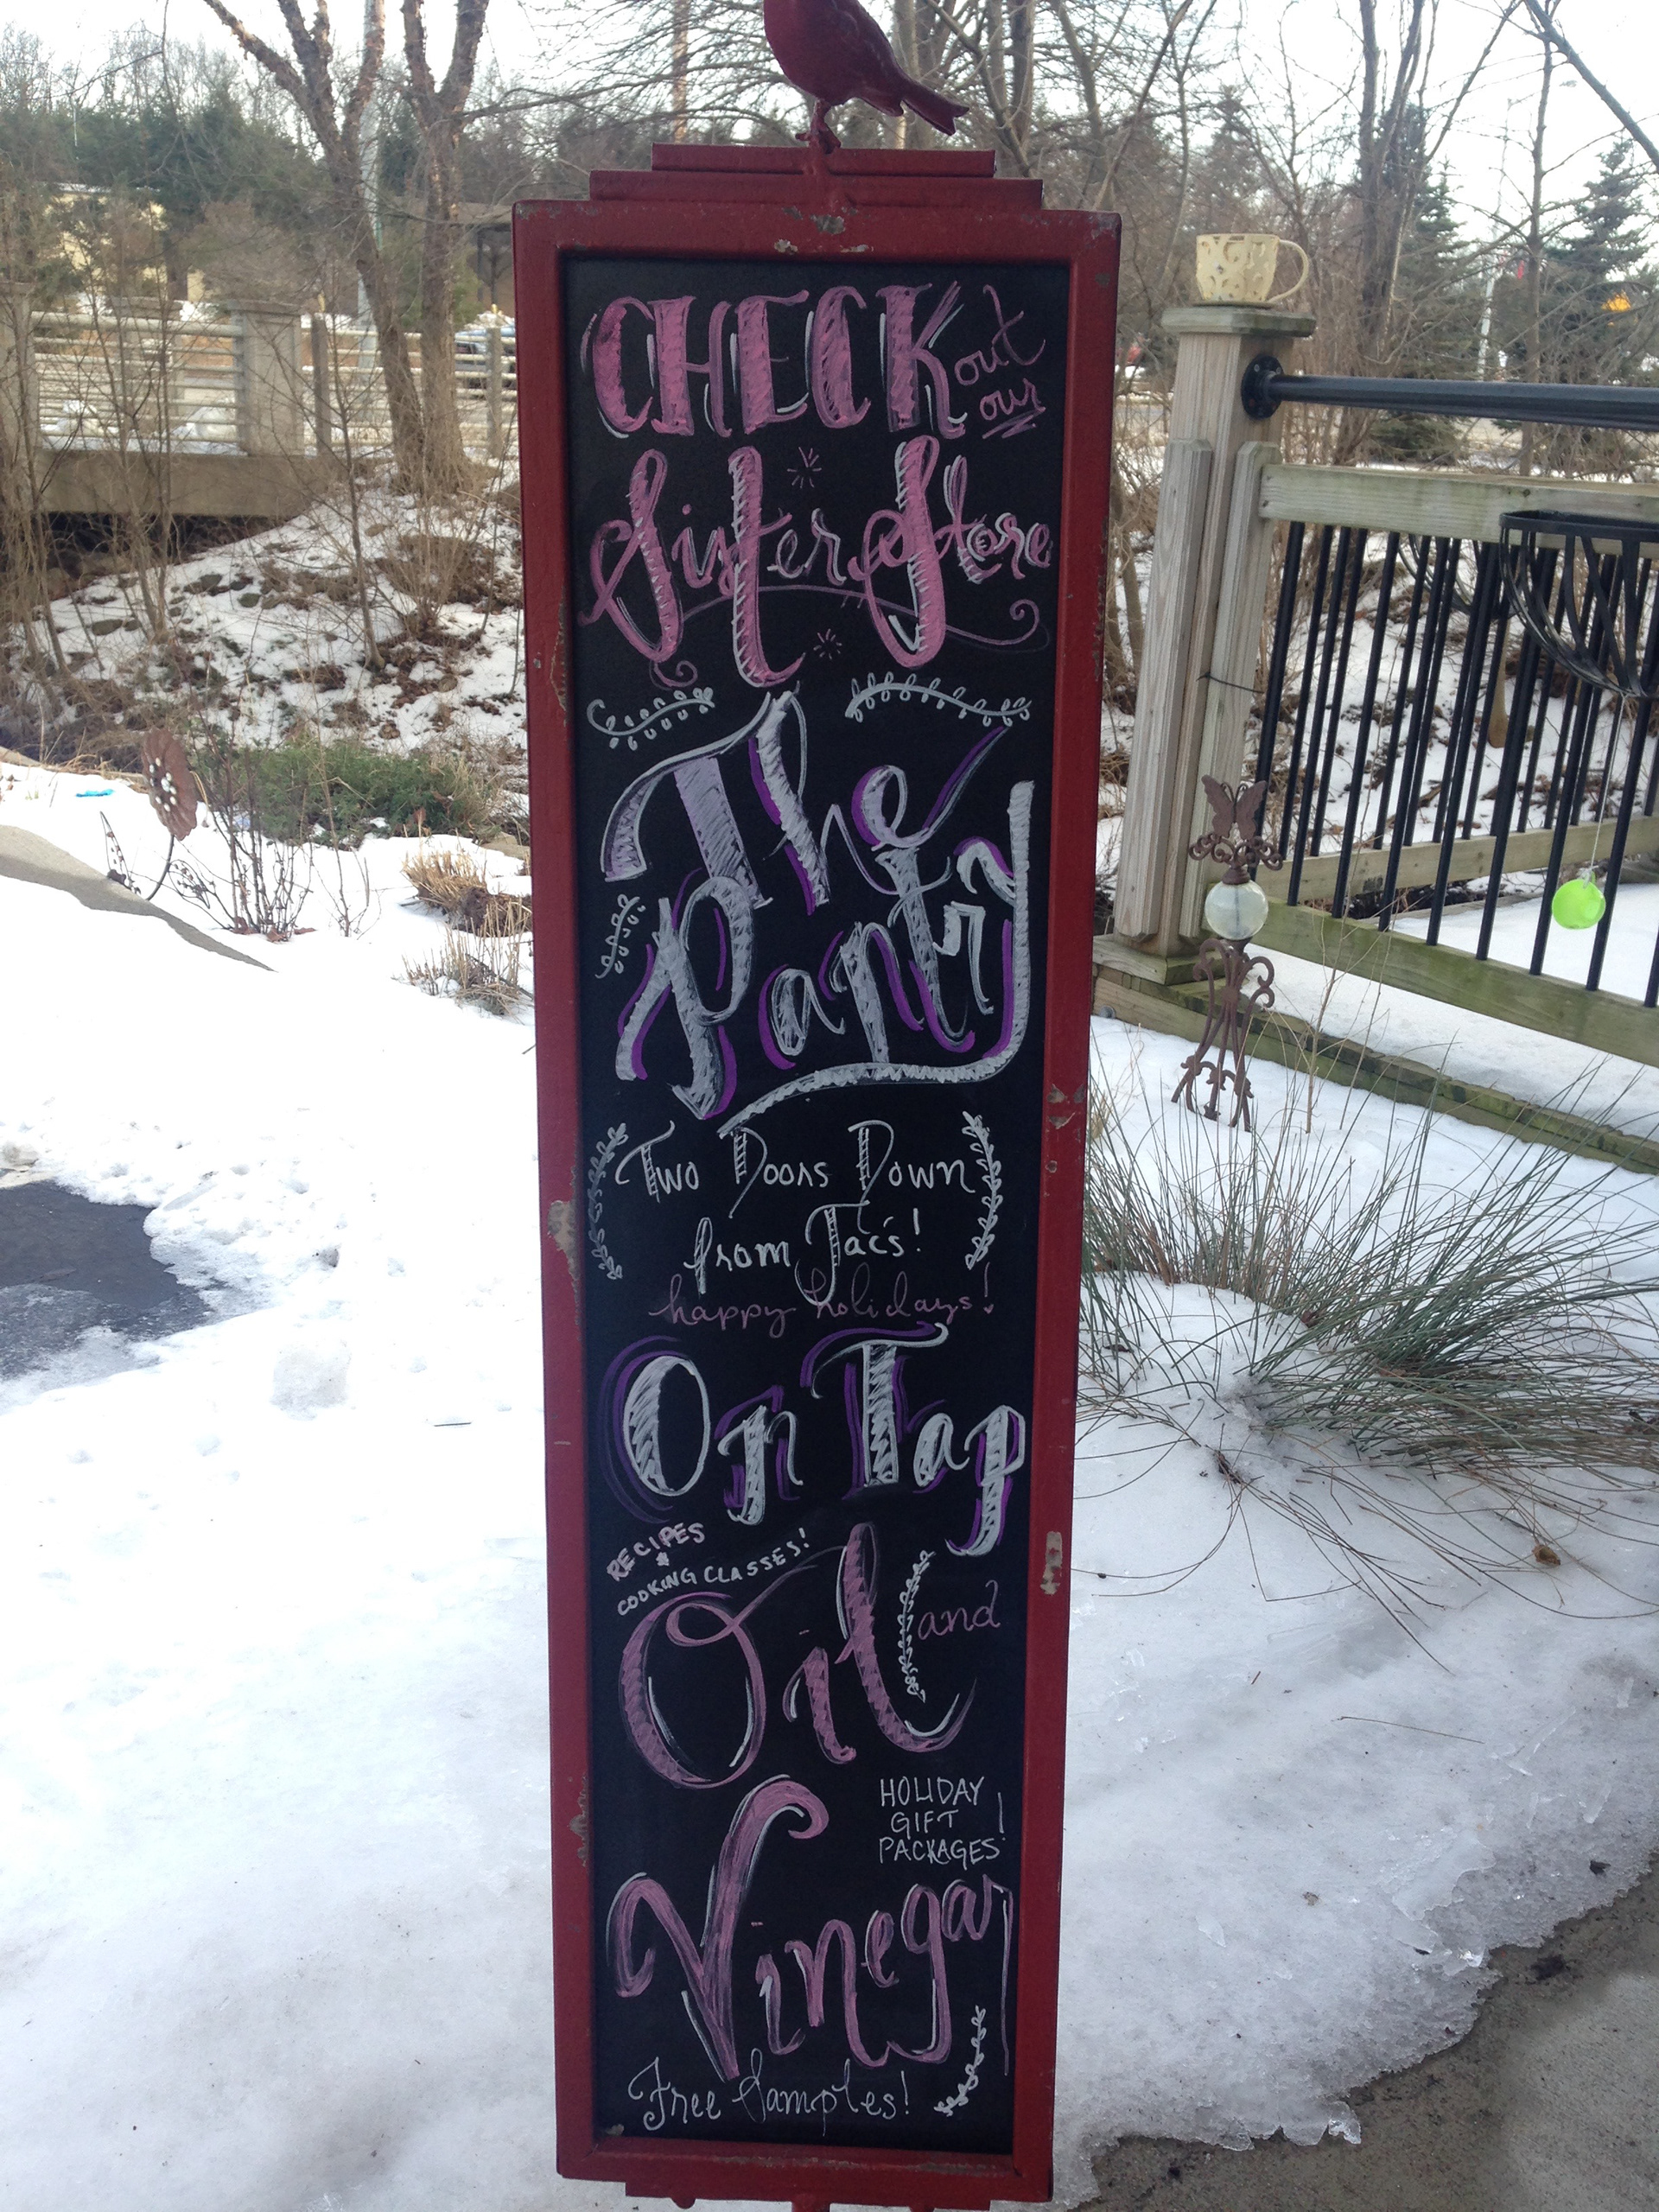 CHECK out our
Sister Store
The
Pantry
Two Doors Down
from Tac's!
happy holidays!
On Tap
RECIPES
&
COOKING CLASSES!
Oil and
HOLIDAY
GIFT
PACKAGES!
Vinegar
Free Samples!